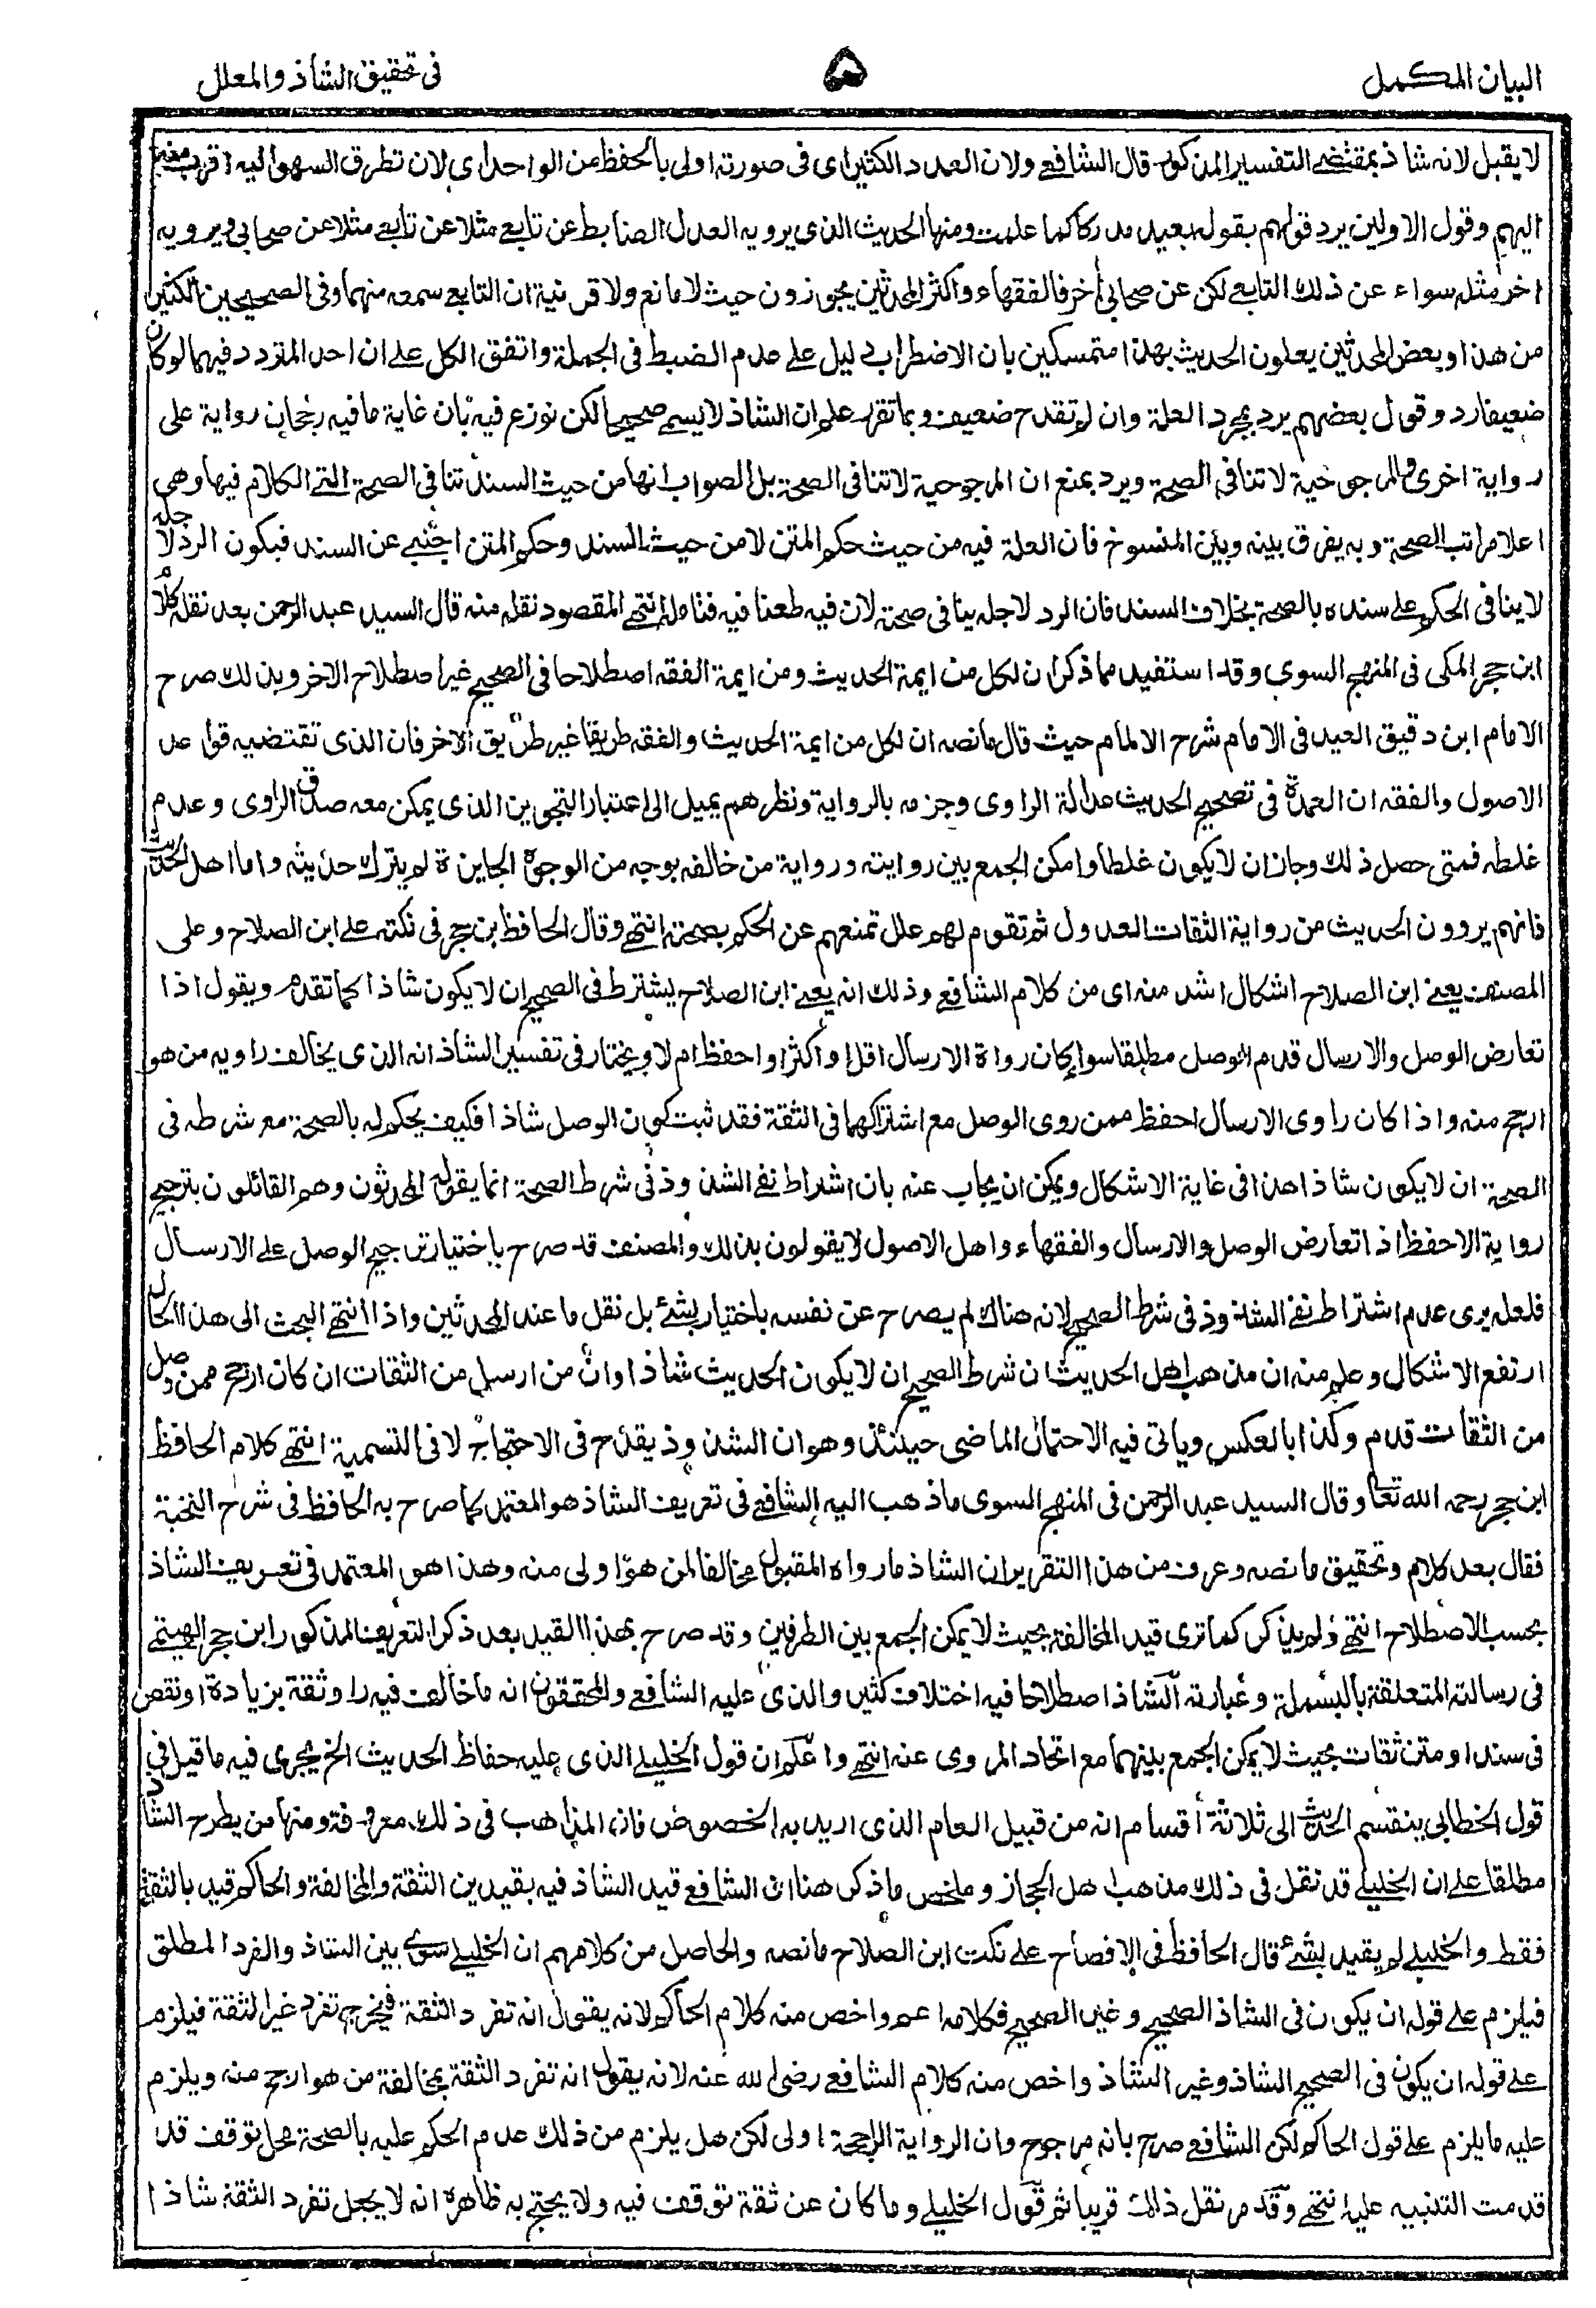 البيان المكمل
۵
فى تحقيق الشاذ والمعلل
لا يقبل لانه شاذ بمقتضى التفسير المذكور قال الشافعى ولان العدد الكثير اى فى صورته اولى بالحفظ من الواحد اى لان تطرق السهو اليه اقرب منه
اليهم وقول الاولين يرد قولهم بقوله بعيد مدركا كما علمت ومنها الحديث الذى يرويه العدل الضابط عن تابعى مثلا عن تابعى مثلا عن صحابى ويرويه
اخر مثله سواء عن ذلك التابعى لكن عن صحابى أخر فالفقهاء واكثر المحدثين يجوزون حيث لا مانع ولا قرينة ان التابعى سمعه منهما وفى الصحيحين الكثير
من هذا وبعض المحدثين يعلون الحديث بهذا متمسكين بان الاضطراب دليل على عدم الضبط فى الجملة واتفق الكل على ان احد المتردد فيهما لو كان
ضعيفا رد وقول بعضهم يرد بمجرد العلة وان لم تقدح ضعيف وبما تقرر علم ان الشاذ لا يسمى صحيحا لكن نوزع فيه بان غاية ما فيه رجحان رواية على
رواية اخرى والمرجوحية لا تنافى الصحة ويرد بمنع ان المرجوحية لا تنافى الصحة بل الصواب انها من حيث السند تنافى الصحة التى الكلام فيها وهى
اعلا مراتب الصحة وبه يفرق بينه وبين المنسوخ فان العلة فيه من حيث حكم المتن لا من حيث السند وحكم المتن اجنبى عن السند فيكون الرد لاجله
لا ينافى الحكم على سنده بالصحة بخلاف السند فان الرد لاجله ينافى صحته لان فيه طعنا فيه فتامله انتهى المقصود نقله منه قال السيد عبد الرحمن بعد نقله كلام
ابن حجر المكى فى المنهج السوى وقد استفيد مما ذكر ان لكل من ايمة الحديث ومن ايمة الفقه اصطلاحا فى الصحيح غير اصطلاح الاخر وبذلك صرح
الامام ابن دقيق العيد فى الامام شرح الالمام حيث قال ما نصه ان لكل من ايمة الحديث والفقه طريقا غير طريق الاخر فان الذى تقتضيه قواعد
الاصول والفقه ان العمدة فى تصحيح الحديث عدالة الراوى وجزمه بالرواية ونظرهم يميل الى اعتبار التجويز الذى يمكن معه صدق الراوى وعدم
غلطه فمتى حصل ذلك وجاز ان لا يكون غلطا وامكن الجمع بين روايته ورواية من خالفه بوجه من الوجوه الجايزة لم يترك حديثه واما اهل الحديث
فانهم يروون الحديث من رواية الثقات العدول ثم تقوم لهم علل تمنعهم عن الحكم بصحته انتهى وقال الحافظ بن حجر فى نكته على ابن الصلاح وعلى
المصنف يعنى ابن الصلاح اشكال اشد منه اى من كلام الشافعى وذلك انه يعنى ابن الصلاح يشترط فى الصحيح ان لا يكون شاذا كما تقدم ويقول اذا
تعارض الوصل والارسال قدم الوصل مطلقا سواء كان رواة الارسال اقل او اكثر او احفظ ام لا ويختار فى تفسير الشاذ انه الذى يخالف راويه من هو
ارجح منه واذا كان راوى الارسال احفظ ممن روى الوصل مع اشتراكهما فى الثقة فقد ثبت كون الوصل شاذا فكيف يحكم له بالصحة مع شرطه فى
الصحة ان لا يكون شاذا هذا فى غاية الاشكال ويمكن ان يجاب عنه بان اشتراط نفى الشذوذ فى شرط الصحة انما يقوله المحدثون وهم القائلون بترجيح
رواية الاحفظ اذا تعارض الوصل والارسال والفقهاء واهل الاصول لا يقولون بذلك والمصنف قد صرح باختيار ترجيح الوصل على الارسال
فلعله يرى عدم اشتراط نفى الشذوذ فى شرط الصحيح لانه هناك لم يصرح عن نفسه باختيار بشئ بل نقل ما عند المحدثين واذا انتهى البحث الى هذا الحال
ارتفع الاشكال وعلم منه ان مذهب اهل الحديث ان شرط الصحيح ان لا يكون الحديث شاذا وان من ارسل من الثقات ان كان ارجح ممن وصل
من الثقات قدم وكذا بالعكس وياتى فيه الاحتمال الماضى حينئذ وهو ان الشذوذ يقدح فى الاحتجاج لا فى التسمية انتهى كلام الحافظ
ابن حجر رحمه الله تعا وقال السيد عبد الرحمن فى المنهج السوى ما ذهب اليه الشافعى فى تعريف الشاذ هو المعتمد كما صرح به الحافظ فى شرح النخبة
فقال بعد كلام وتحقيق ما نصه وعرف من هذا التقرير ان الشاذ ما رواه المقبول مخالفا لمن هو اولى منه وهذا هو المعتمد فى تعريف الشاذ
بحسب الاصطلاح انتهى ولم يذكر كما ترى قيد المخالفة بحيث لا يمكن الجمع بين الطرفين وقد صرح بهذا القيد بعد ذكر التعريف المذكور ابن حجر الهيتمى
فى رسالته المتعلقة بالبسملة وعبارته الشاذ اصطلاحا فيه اختلاف كثير والذى عليه الشافعى والمحققون انه ما خالف فيه راو ثقة بزيادة او نقص
فى سند او متن ثقات بحيث لا يمكن الجمع بينهما مع اتحاد المروى عنه انتهى واعلم ان قول الخليلى الذى عليه حفاظ الحديث الخ يجرى فيه ما قيل فى
قول الخطابى ينقسم الحديث الى ثلاثة أقسام انه من قبيل العام الذى اريد به الخصوص فان المذاهب فى ذلك معروفة ومنها من يطرح الشاذ
مطلقا على ان الخليلى قد نقل فى ذلك مذهب اهل الحجاز وملخص ما ذكر هنا ان الشافعى قيد الشاذ فيه بقيدين الثقة والمخالفة والحاكم قيد بالثقة
فقط والخليلى لم يقيد بشئ قال الحافظ فى الافصاح على نكت ابن الصلاح ما نصه والحاصل من كلامهم ان الخليلى سوى بين الشاذ والفرد المطلق
فيلزم على قوله ان يكون فى الشاذ الصحيح وغير الصحيح فكلامه اعم واخص منه كلام الحاكم لانه يقول انه تفرد الثقة فيخرج تفرد غير الثقة فيلزم
على قوله ان يكون فى الصحيح الشاذ وغير الشاذ واخص منه كلام الشافعى رضى الله عنه لانه يقول انه تفرد الثقة بمخالفة من هو ارجح منه ويلزم
عليه ما يلزم على قول الحاكم لكن الشافعى صرح بانه مرجوح وان الرواية الراجحة اولى لكن هل يلزم من ذلك عدم الحكم عليه بالصحة محل توقف قد
قدمت التنبيه عليه انتهى وقدم نقل ذلك قريبا ثم قول الخليلى وما كان عن ثقة توقف فيه ولا يحتج به ظاهره انه لا يجعل تفرد الثقة شاذا